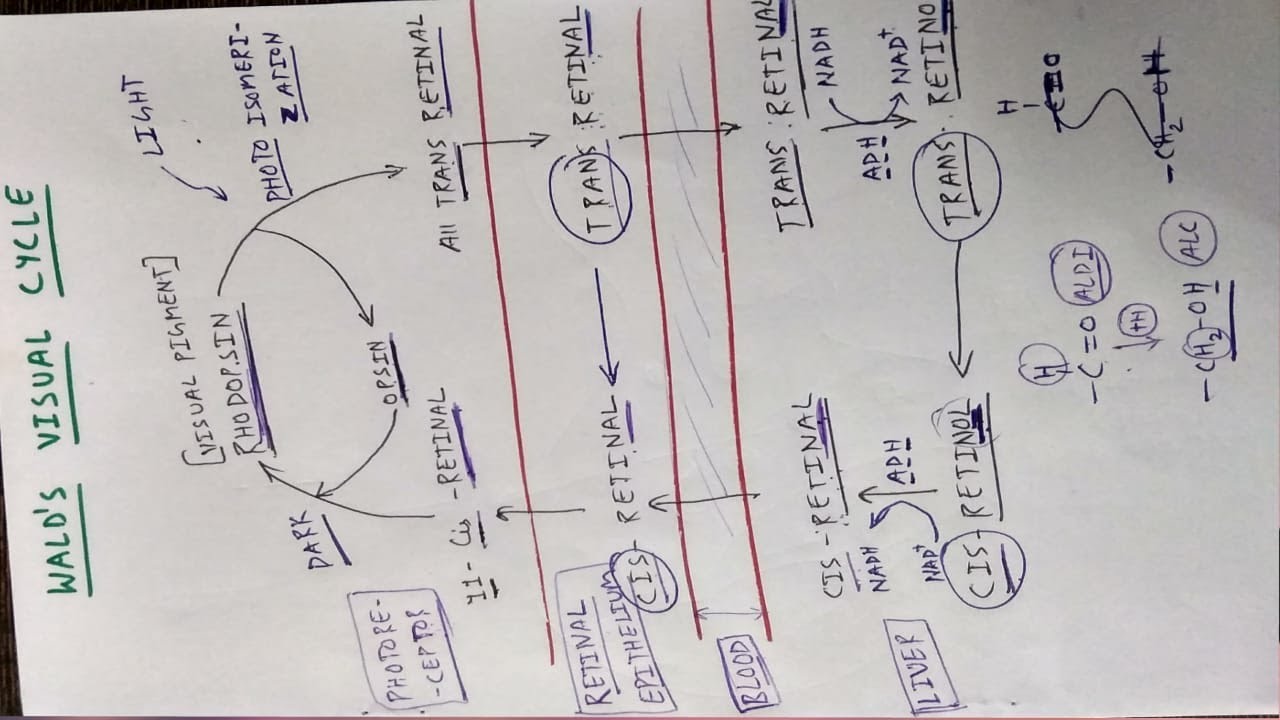 WALD'S VISUAL CYCLE
LIGHT
[VISUAL PIGMENT]
RHODOPSIN
PHOTO ISOMERI-
ZATION
DARK
OPSIN
PHOTORE-
-CEPTOR
11-Cis-RETINAL
All TRANS RETINAL
RETINAL
EPITHELIUM
CIS-RETINAL
TRANS:RETINAL
BLOOD
CIS-RETINAL
TRANS:RETINAL
NADH
NAD+
ADH
ADH
NADH
NAD+
LIVER
CIS-RETINOL
TRANS.RETINO
H
-C=O ALDI
+H
-CH2-OH ALC
H
C=O
-CH2-OH